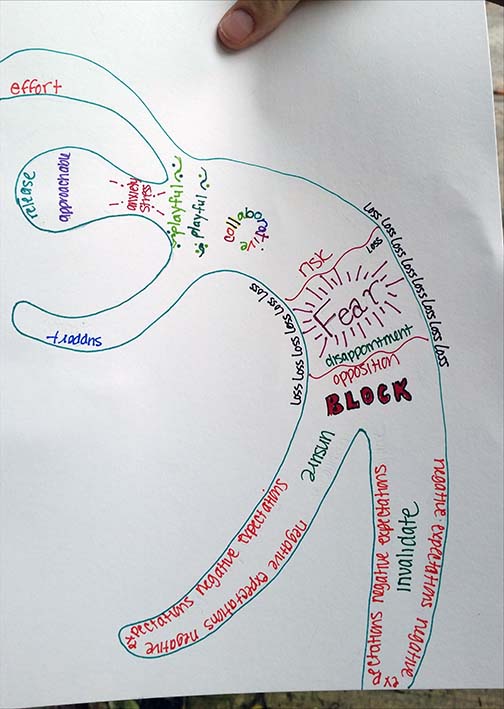 effort
release
approachable
anxiety
stress
playful
playful
collaborative
support
Loss Loss Loss Loss Loss Loss Loss Loss Loss
risk
Loss
Fear
disappointment
opposition
Loss Loss Loss Loss Loss Loss
BLOCK
unsure
negative expectations negative expectations
negative expectations negative
invalidate
negative expectations negative expectations
negative expectations negative